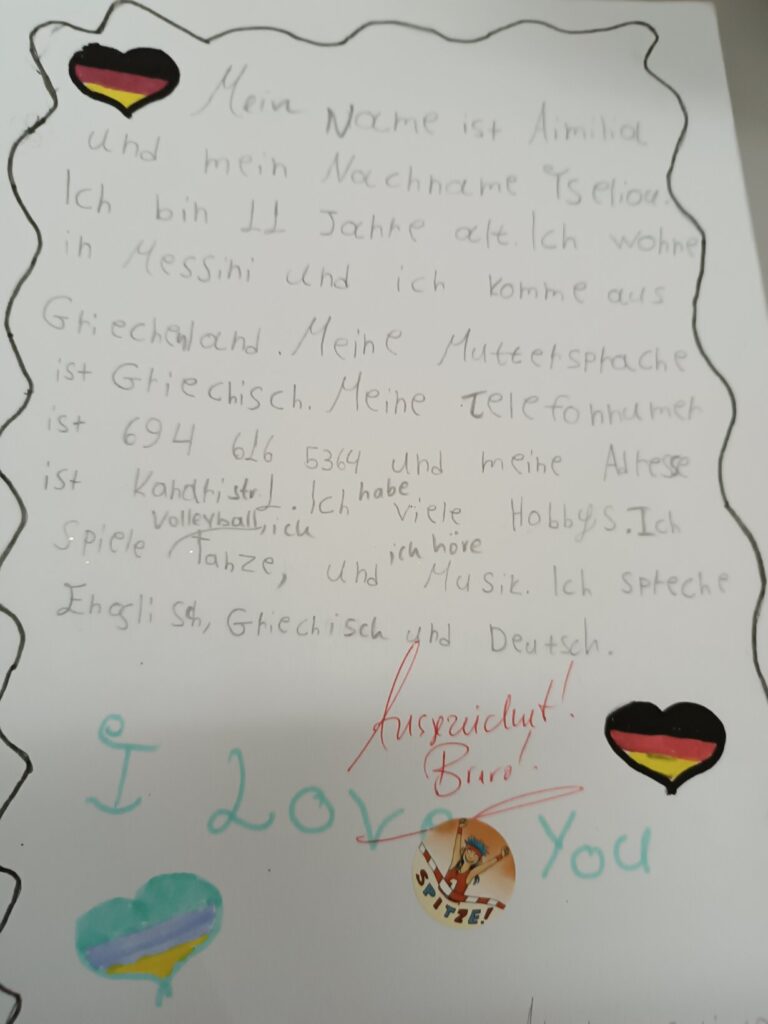 Mein Name ist Aimilia
und mein Nachname Tseliou.
Ich bin 11 Jahre alt. Ich wohne
in Messini und ich komme aus
Griechenland. Meine Muttersprache
ist Griechisch. Meine Telefonnumer
ist 694 616 5364 und meine Adresse
ist Kandristr. 1. Ich habe viele Hobbys. Ich
spiele Volleyball, ich Tanze, und ich höre Musik. Ich spreche
Englisch, Griechisch und Deutsch.
Ausgezeichnet!
Bravo!
I Love You
SPITZE!